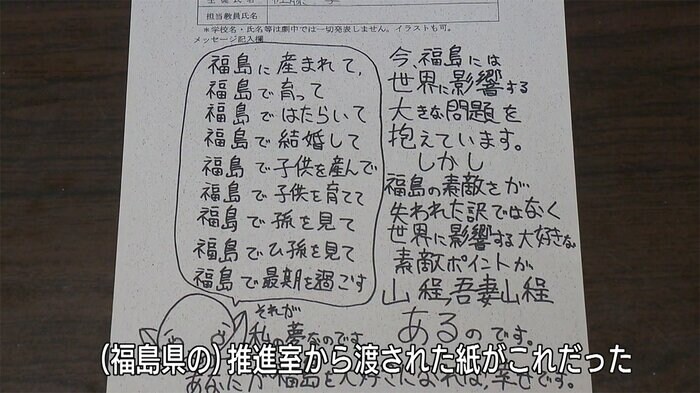 担当教員氏名
*学校名・氏名等は劇中では一切発表しません。イラストも可。
メッセージ記入欄
福島に産まれて、
福島で育って
福島ではたらいて
福島で結婚して
福島で子供を産んで
福島で子供を育てて
福島で孫を見て
福島でひ孫を見て
福島で最期を過ごす
それが
私の夢なのです
今、福島には
世界に影響する
大きな問題を
抱えています。
しかし
福島の素敵をが
失われた訳ではなく
世界に影響する大好きな
素敵ポイントが
山程、吾妻山程
あるのです。
あなたが福島を大好きになれば、幸せです。
(福島県の)推進室から渡された紙がこれだった